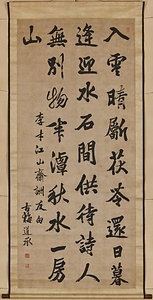 入雲晴斸茯苓還日暮
逢迎水石間供待詩人
無別物半潭秋水一房
山
道承